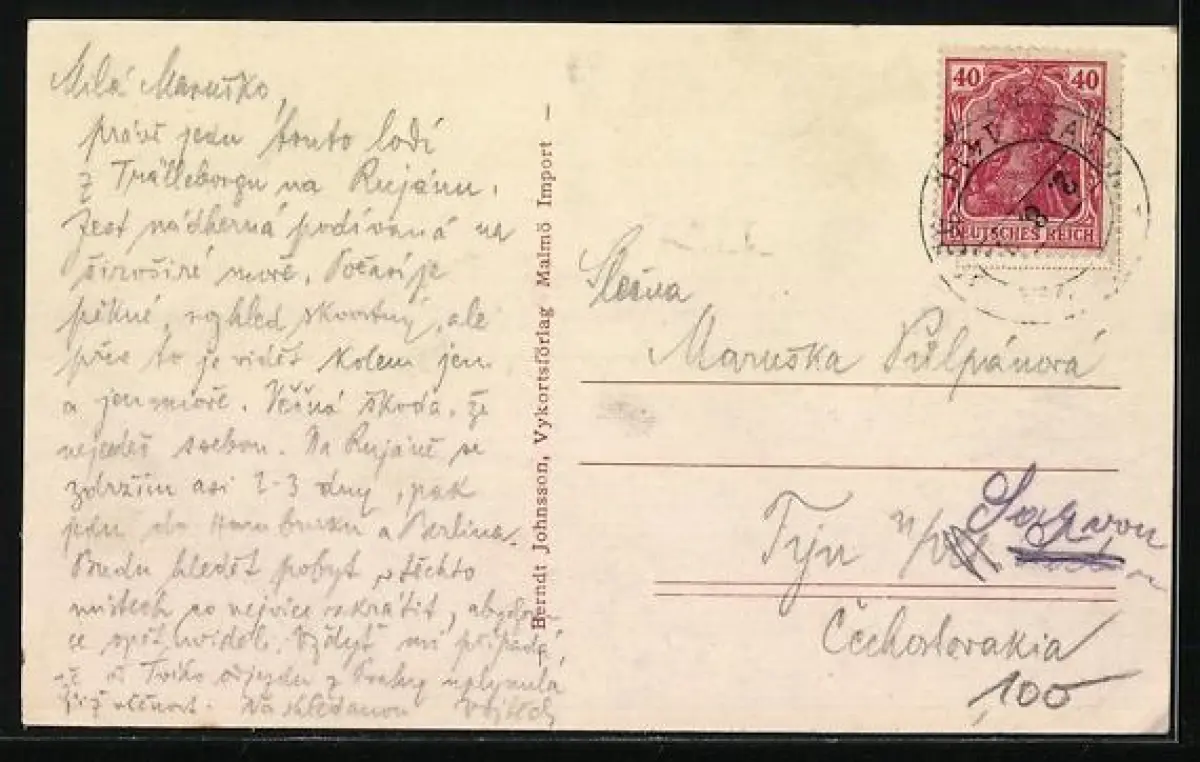 Milá Maruško,
právě jedu touto lodí
z Trälleborgu na Rujánu.
Jest nádherná podívaná na
široširé moře. Počasí je
pěkné, vyhled skvostný, ale
přes to je viděti kolem jen
a jen moře. Věčná škoda, že
nejedeš sebou. Na Rujáně se
zdržím asi 2-3 dny, pak
jedu do Hamburku a Berlína.
Budu hleděti pobyt v těchto
místech co nejvíce zkrátit,
se spět viděli. Vždyť mi připadá,
že od Tvého odjezdu z Prahy uplynula
již věčnost. Na shledanou Vojtěch
— Berndt Johnsson, Vykortsförlag Malmö Import —
40 40
DEUTSCHES REICH
Slečna
Maruška Půlpánová
Týn n/
Sázavou
Čechoslovakia
100